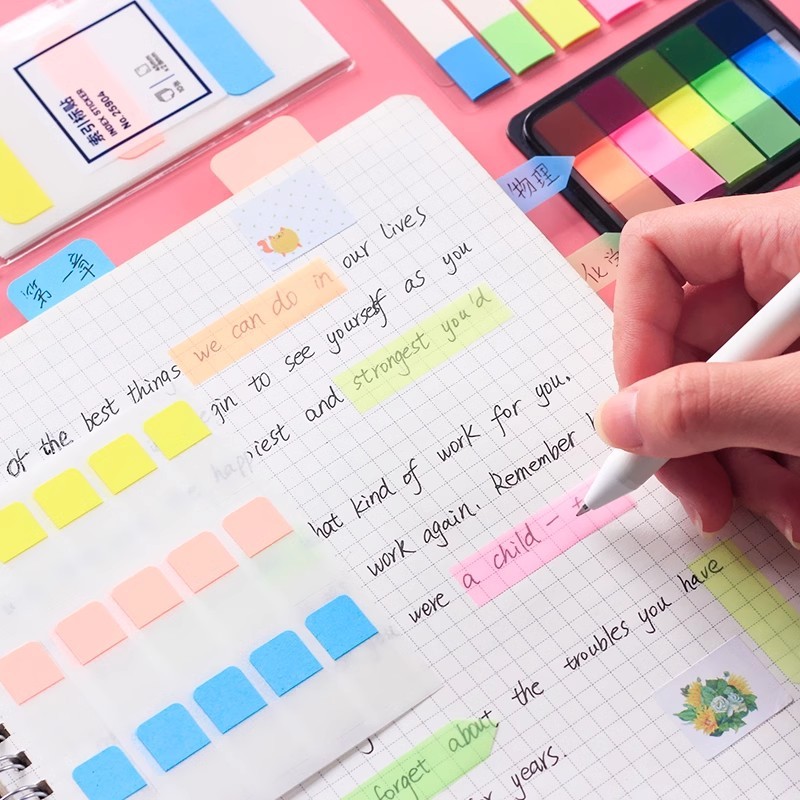 索引标贴
INDEX STICKER
No.25904
第一章
物理
化学
our lives
of the best things we can do in
to see yourself as you
and strongest you'd
kind of work for you.
work again. Remember
were a child -
the troubles you have
forget about
years.